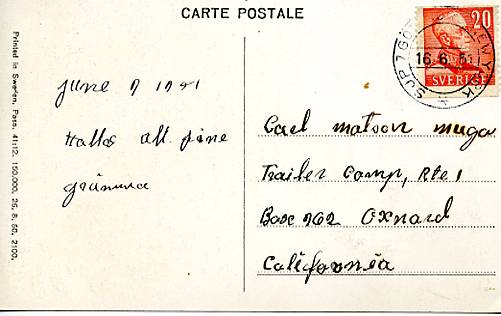 CARTE POSTALE
20
SVERIGE
SJP 7 GÖT NEW YORK
16.6.51
June 9 1951
Hallo all fine
Carl matson muga
Trailer Camp, Rte 1
Box 262 Oxnard
California
Printed in Sweden. Pass. 41:12. 150.000. 25. 8. 50. 2100.